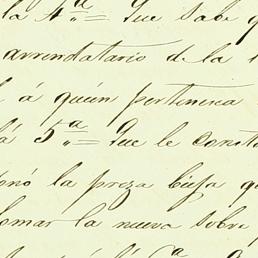 la 4ª = Que sabe q
arrendatario de la
l á quien pertenecia
á 5ª = Que le consta
onó la preza bieja qu
lomar la nueva sobre